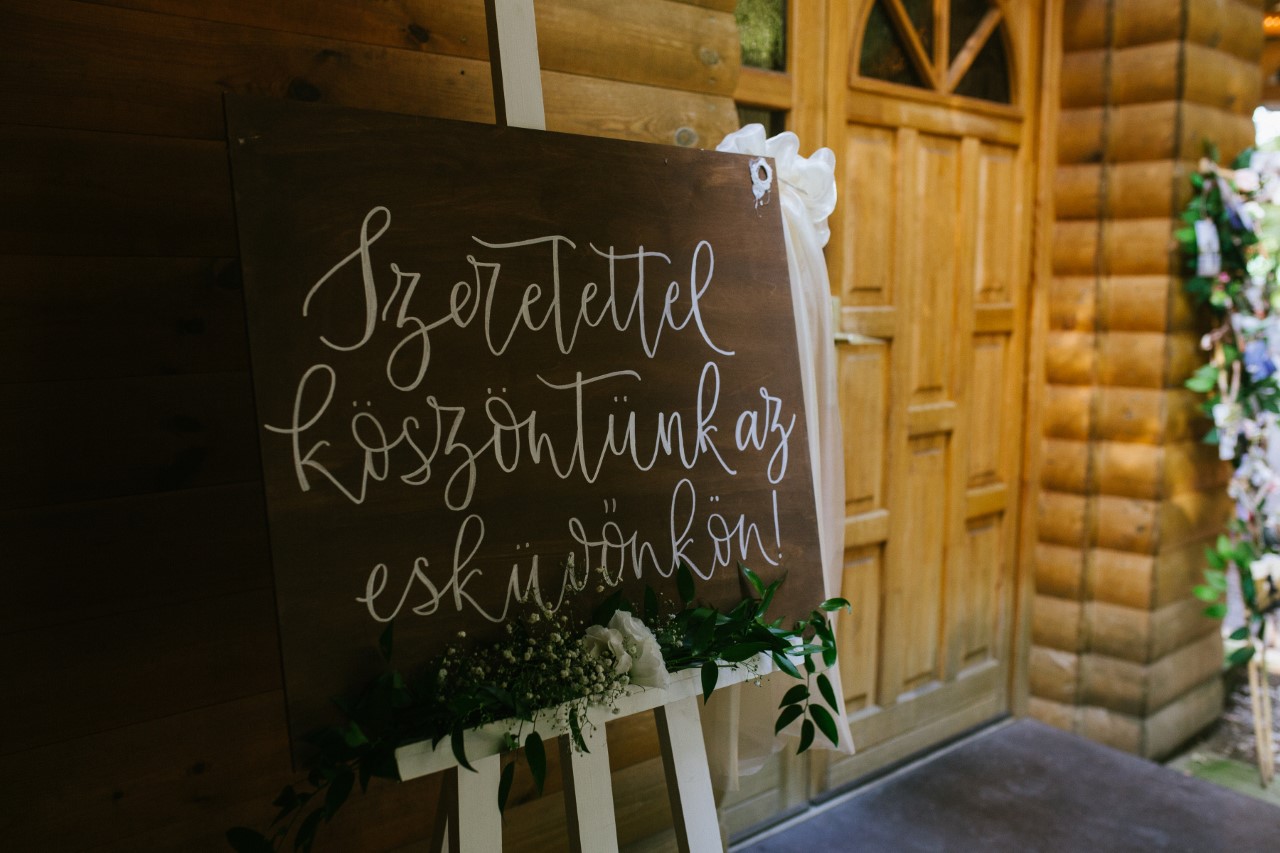 Szeretettel
köszöntünk az
esküvőnkön!